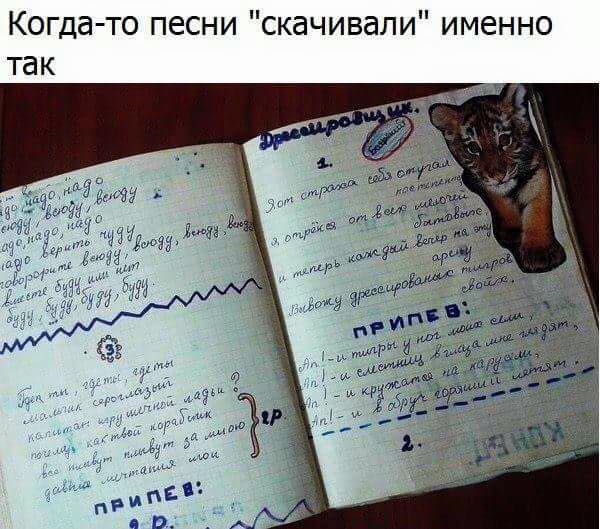 Когда-то песни "скачивали" именно
так
надо, надо
всюду, всюду
надо, надо
верить чуду
всюду, всюду
вместе буду или нет
буду, буду, буду, буду.
3
Где ты, где ты, где ты
мальчик сероглазый
капитан игрушечной ладьи?
почему как твой кораблик
все плывут плывут за мною
давние мечтания мои
2р.
ПРИПЕВ:
2 р.
Дрессировщик.
1.
Я от страха себя отучал
постепенно
Я, отрёкся от всех мелочей
бытовых,
и теперь каждый вечер на эту
арену
Вывожу дрессированых тигров
своих.
ПРИПЕВ:
Ап! - и тигры у ног моих сели,
Ап! - и с лестниц в глаза мне глядят,
Ап! - и кружатся на карусели,
Ап! - и в обруч горящий летят.
2.